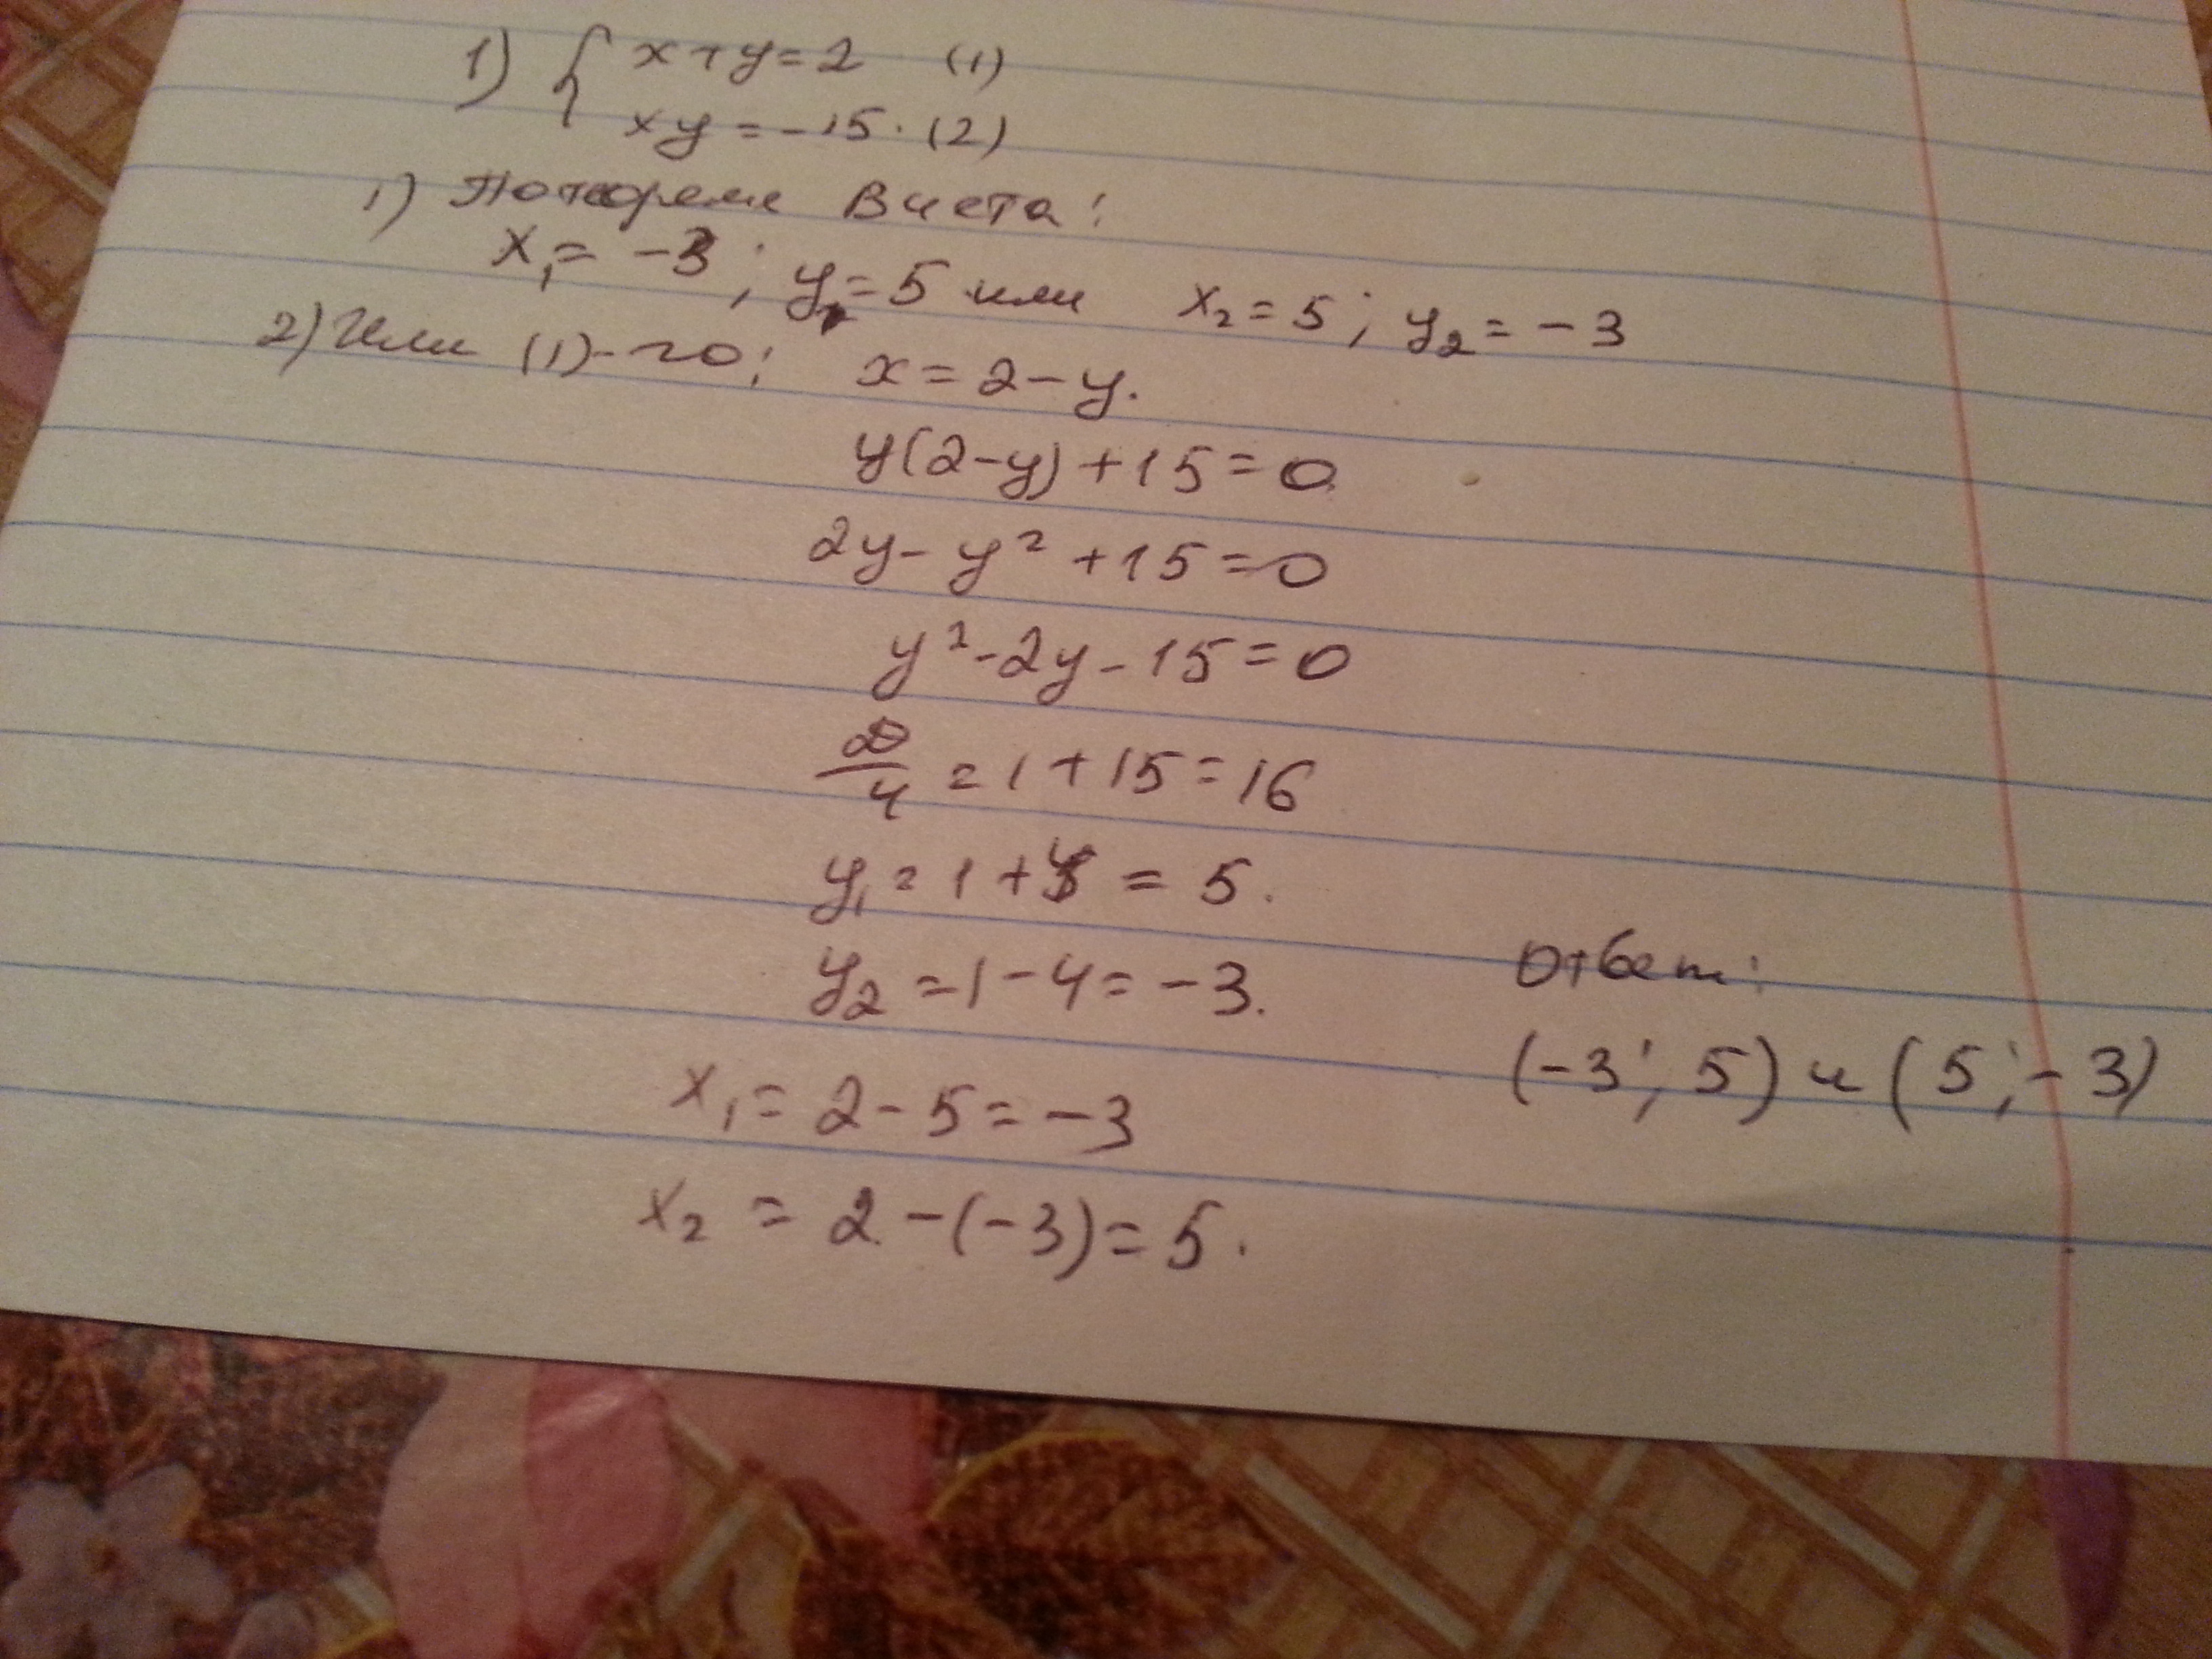 1) { x+y=2 (1)
xy=-15. (2)
1) По теореме Виета:
x₁=-3; y₁=5 или x₂=5; y₂=-3
2) Или (1)-го: x=2-y.
y(2-y)+15=0
2y-y²+15=0
y²-2y-15=0
D/4=1+15=16
y₁=1+4=5.
y₂=1-4=-3.
x₁=2-5=-3
x₂=2-(-3)=5.
Ответ:
(-3; 5) и (5; -3)